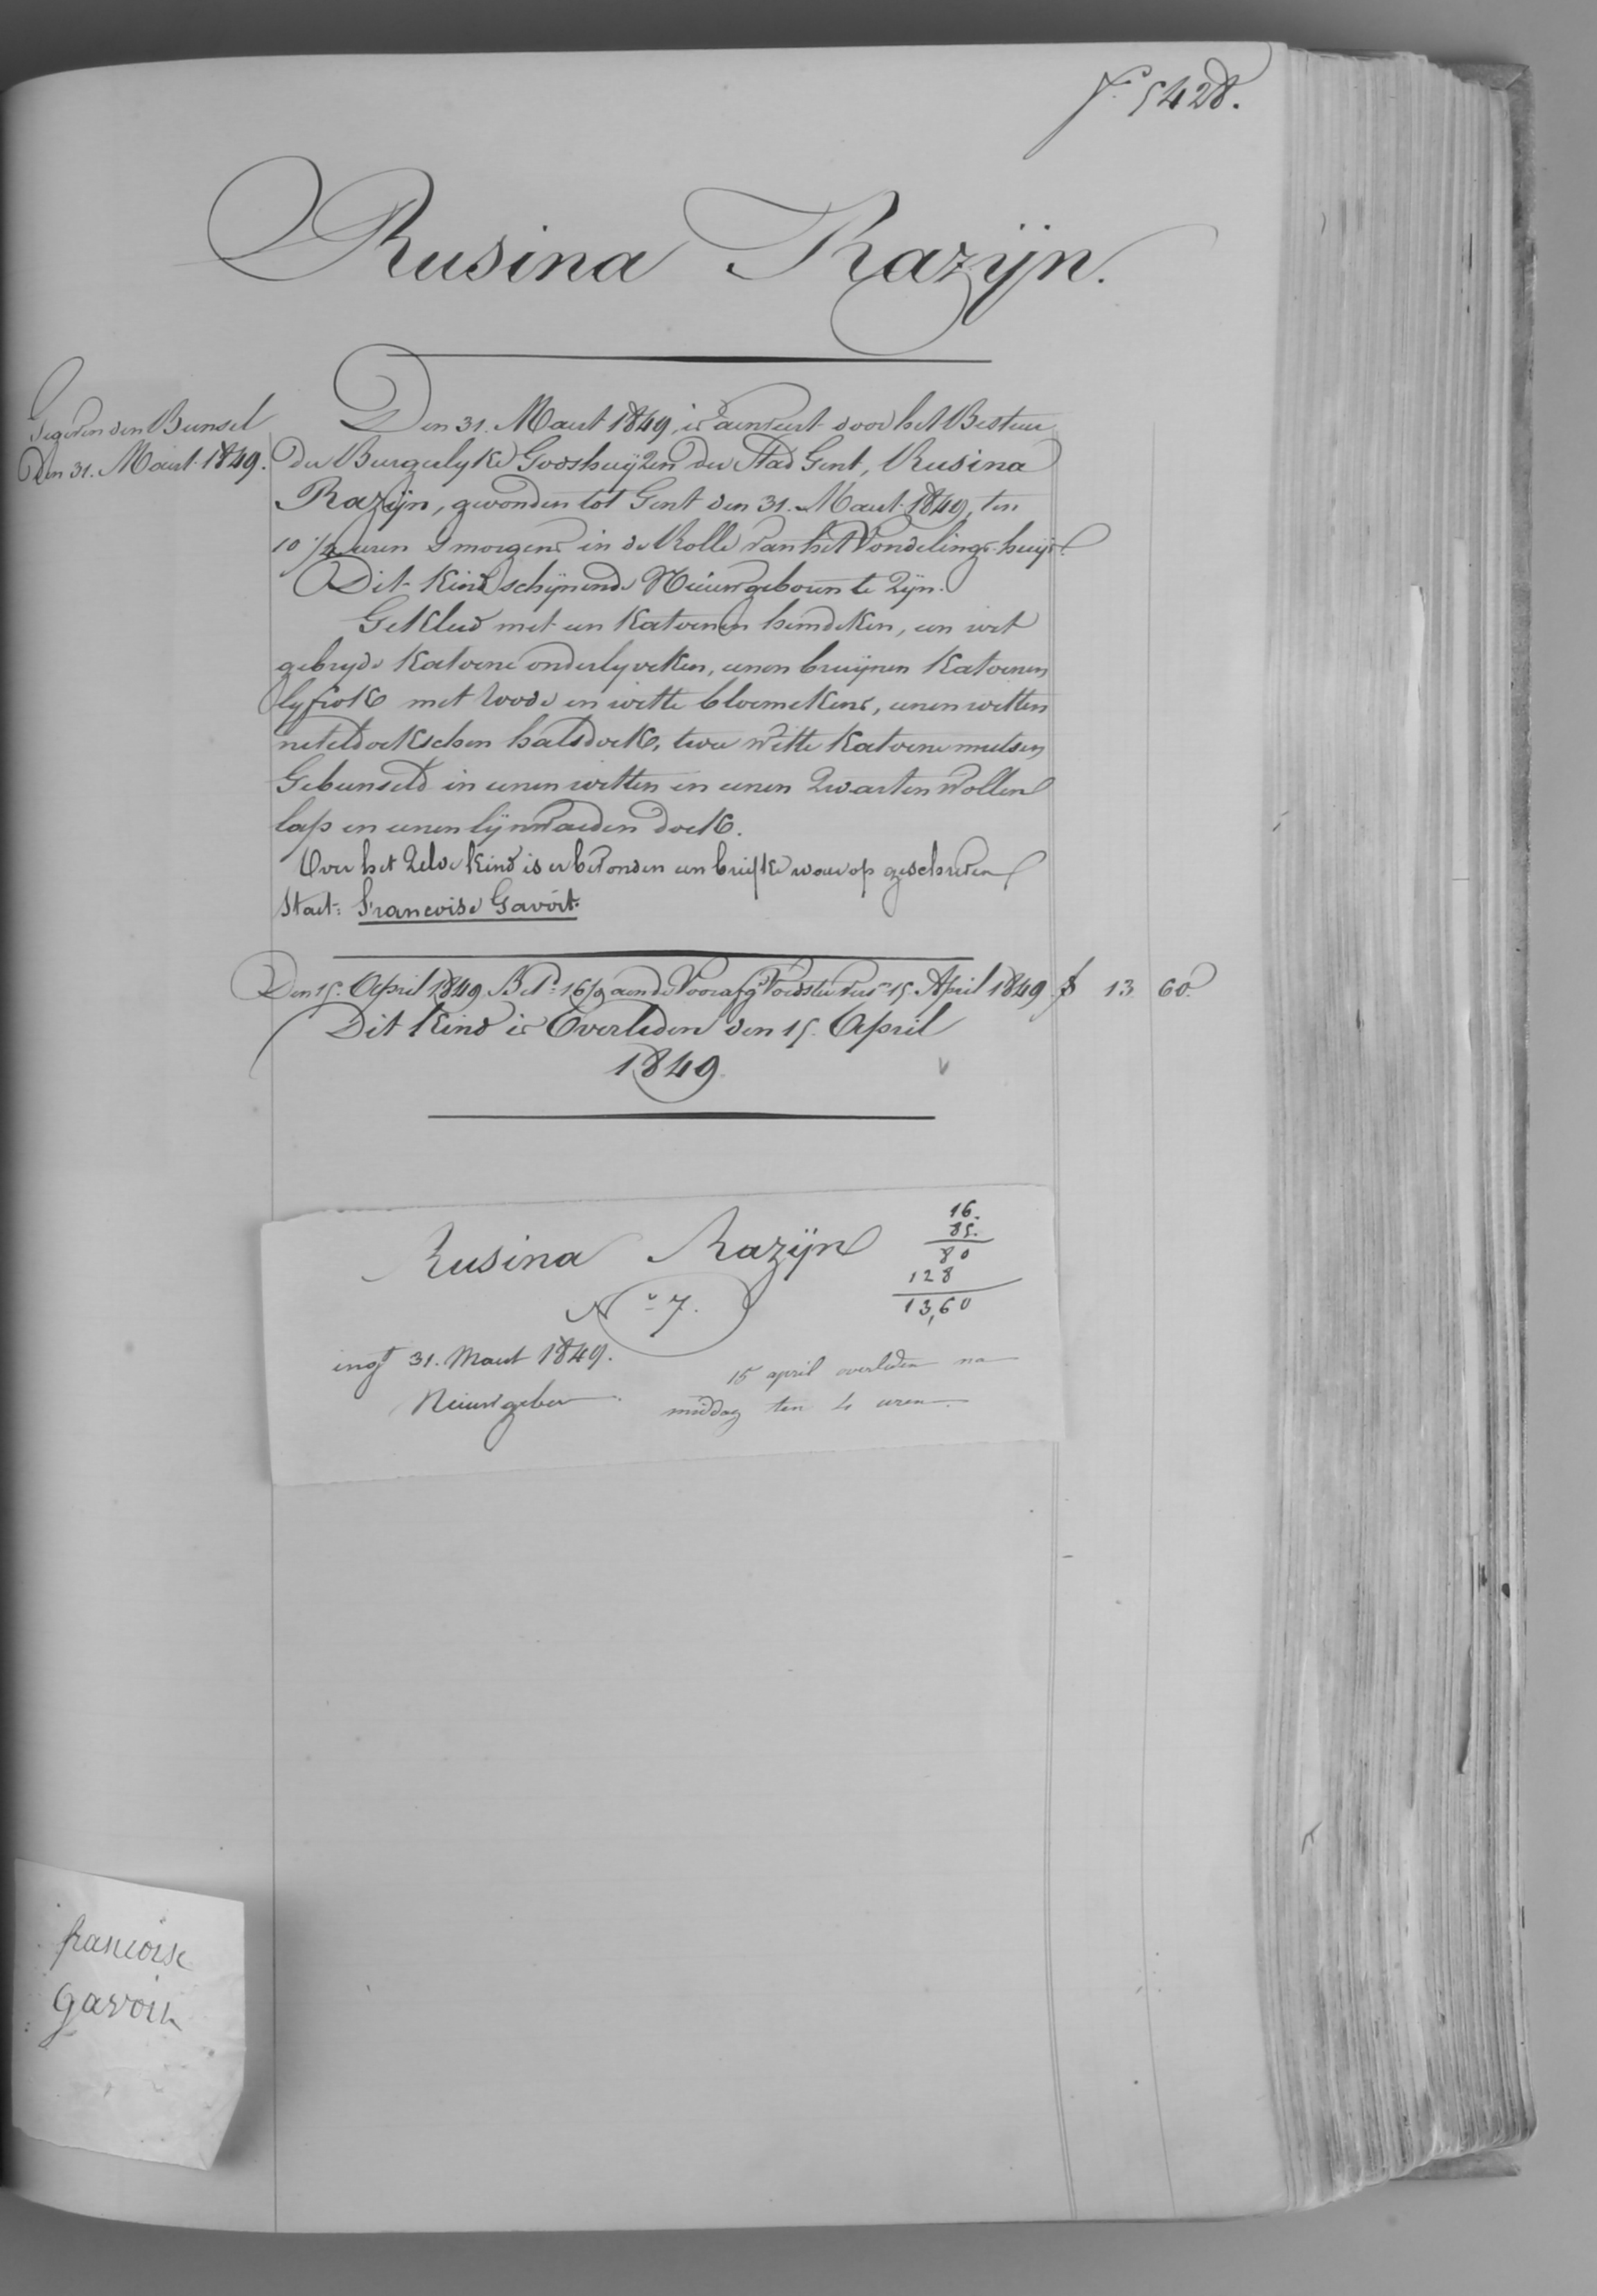 F.° 5428.
Rusina Razÿn.
Gegeven den Bunsel
den 31. Maert 1849.
Den 31. Maert 1849, is aenveert door het Bestuer
der Burgerlyke Godshuÿzen der Stad Gent, Rusina
Razÿn, gevonden tot Gent den 31. Maert 1849, ten
10 1/2 uren S morgens in de Rolle van het Vondelings-huÿs.
Dit Kind schÿnende Nieuwgeboren te Zÿn.
Gekleed met een Katoenen hemdeken, een wit
gebryde Katoene onderlyveken, eenen bruÿnen Katoenen
lyfrok met roode en witte bloemekens, eenen witten
neteldoekschen halsdoek, twee Witte Katoene mutsen
Gebunseld in eenen witten en eenen Zwarten Wollen
lap en eenen lÿnwaeden doek.
Over het Zelve Kind is er bevonden een briefke waer op geschreven
Staet: Francoise Gavoit.
Den 15. April 1849 Bet.d 16/d aende Voorafg. Voedster vers 15. April 1849 f 13 60.
Dit Kind is Overleden den 15. April
1849.
Rusina Razÿn
N.° 7.
16.
85.
80
128
13,60
ingt 31. Maert 1849.
Nieuwgebor
15 april overleden na
middag ten 4 uren.
francoise
gavoit